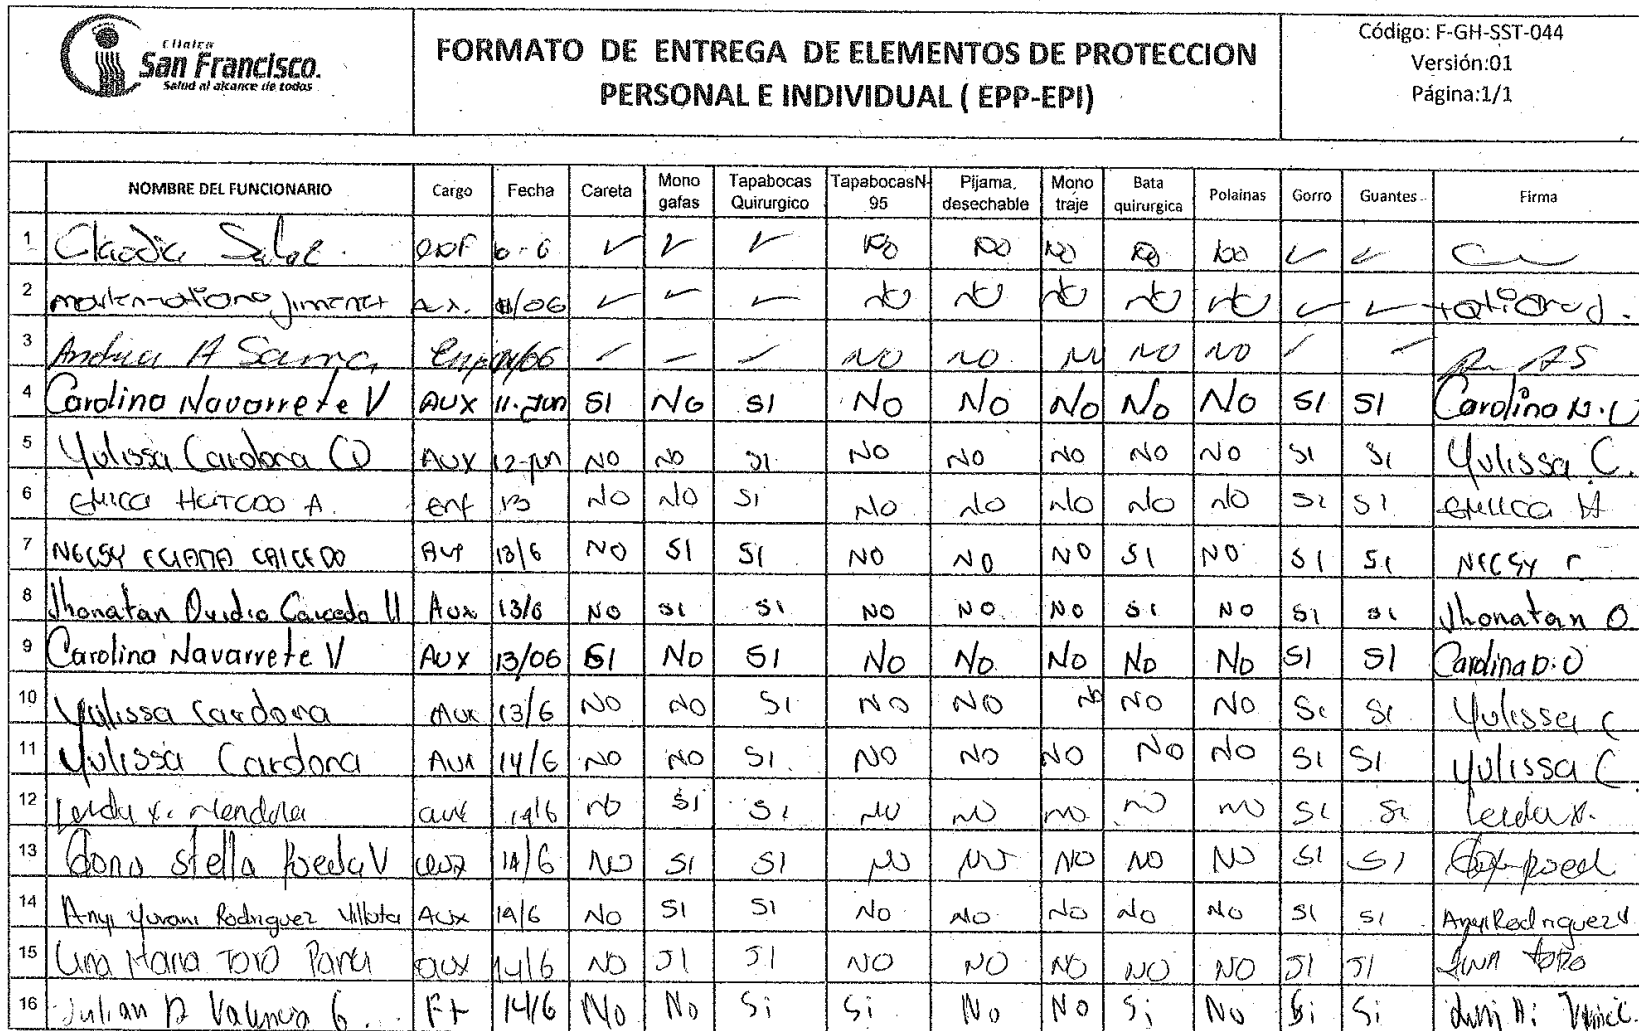 Clínica
San Francisco.
Salud al alcance de todos
FORMATO DE ENTREGA DE ELEMENTOS DE PROTECCION
PERSONAL E INDIVIDUAL ( EPP-EPI)
Código: F-GH-SST-044
Versión:01
Página:1/1
NOMBRE DEL FUNCIONARIO Cargo Fecha Careta Mono gafas Tapabocas Quirurgico TapabocasN-95 Pijama desechable Mono traje Bata quirurgica Polainas Gorro Guantes Firma
1 Claudia ✓ ✓ ✓ No No No No No ✓ ✓
2 Jimenez Aux. /06 ✓ ✓ ✓ No No No No No ✓ ✓
3 Andrea A /06 ✓ ✓ ✓ NO NO NO NO NO ✓ ✓
4 Carolina Navarrete V AUX 11-Jun SI NO SI NO NO NO NO NO SI SI Carolina N.
5 Yulissa Cardona AUX 12-jun NO NO SI NO NO NO NO NO SI SI Yulissa C.
6 Hurtado A. enf 13 NO NO SI NO NO NO NO NO SI SI
7 CAICEDO Aux 13/6 NO SI SI NO NO NO SI NO SI SI
8 Jhonatan Ovidio Caicedo Aux 13/6 NO SI SI NO NO NO SI NO SI SI Jhonatan O
9 Carolina Navarrete V AUX 13/06 SI NO SI NO NO NO NO NO SI SI Carolina
10 Yulissa Cardona Aux 13/6 NO NO SI NO NO NO NO NO SI SI Yulissa C
11 Yulissa Cardona Aux 14/6 NO NO SI NO NO NO NO NO SI SI Yulissa C
12 Leidy x. aux 14/6 NO SI SI NO NO NO NO NO SI SI
13 Stella aux 14/6 NO SI SI NO NO NO NO NO SI SI
14 Anyi Yurani Rodriguez Villota Aux 14/6 NO SI SI NO NO NO NO NO SI SI Anyi Rodriguez V
15 Lina Maria Toro aux 14/6 NO SI SI NO NO NO NO NO SI SI Toro
16 Julian D Valencia G. Ft 14/6 No No Si Si No No Si No Si Si